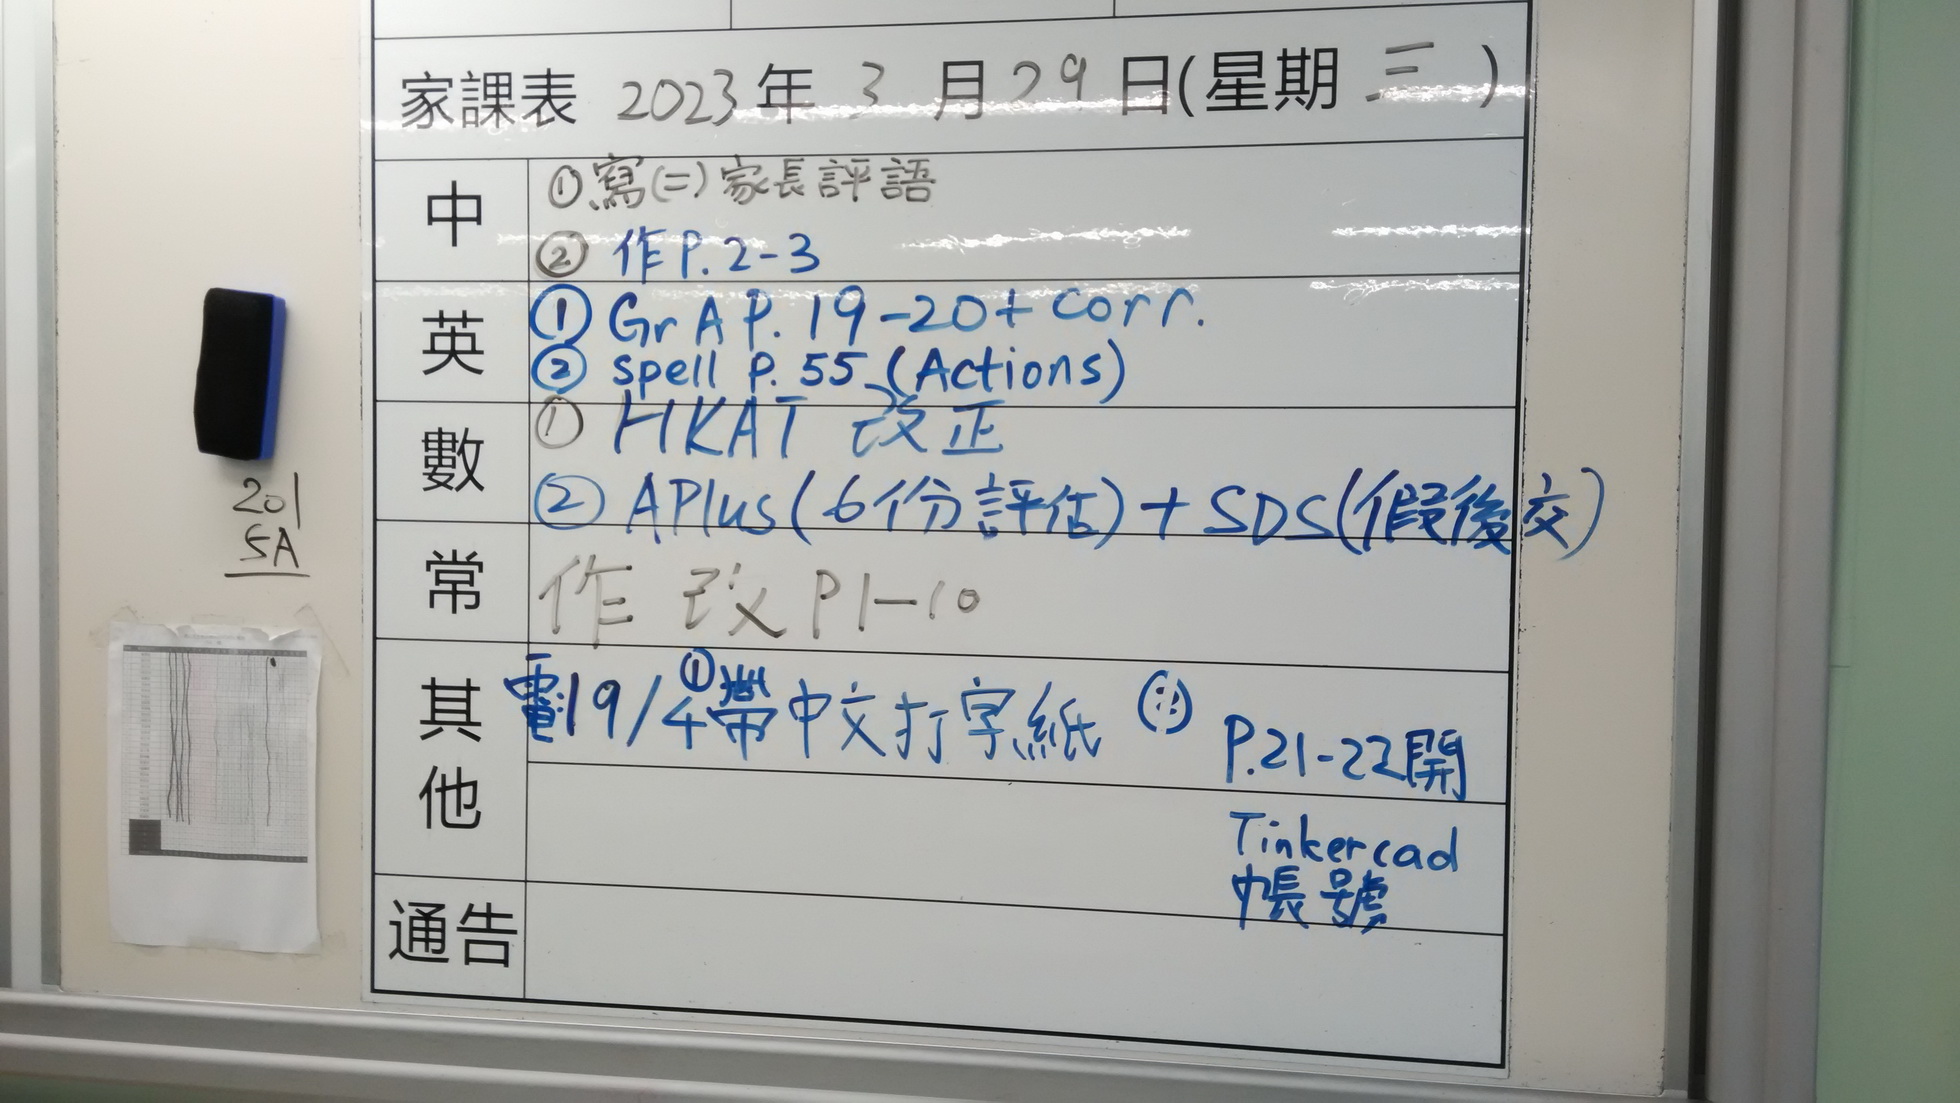 家課表 2023年 3 月 29 日(星期 三 )
中
①寫(二)家長評語
② 作P.2-3
英
① GrA P. 19-20 + corr.
② spell P. 55 (Actions)
數
① HKAT 改正
② APlus(6份評估)+SDS(假後交)
常
作 改 P1-10
其他
電 19/4 ①帶中文打字紙
P.21-22開
Tinkercad
帳號
通告
201
5A